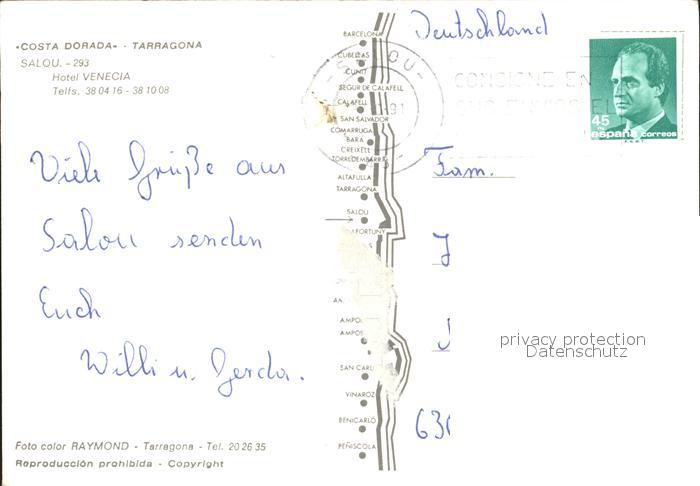 «COSTA DORADA» - TARRAGONA
SALOU. - 293
Hotel VENECIA
Telfs. 38 04 16 - 38 10 08
Viele Grüße aus
Salou senden
Euch
Willi u. Gerda.
Foto color RAYMOND - Tarragona - Tel. 20 26 35
Reproducción prohibida - Copyright
BARCELONA
CUBELLAS
CUNIT
SEGUR DE CALAFELL
CALAFELL
SAN SALVADOR
COMARRUGA
BARA
CREIXELL
TORREDEMBARRA
ALTAFULLA
TARRAGONA
SALOU
AFORTUNY
AMPO
AMPOS
SAN CARL
VINAROZ
BENICARLÓ
PEÑISCOLA
Deutschland
SALOU
91
45
españa correos
Fam.
J
J
631
privacy protection
Datenschutz